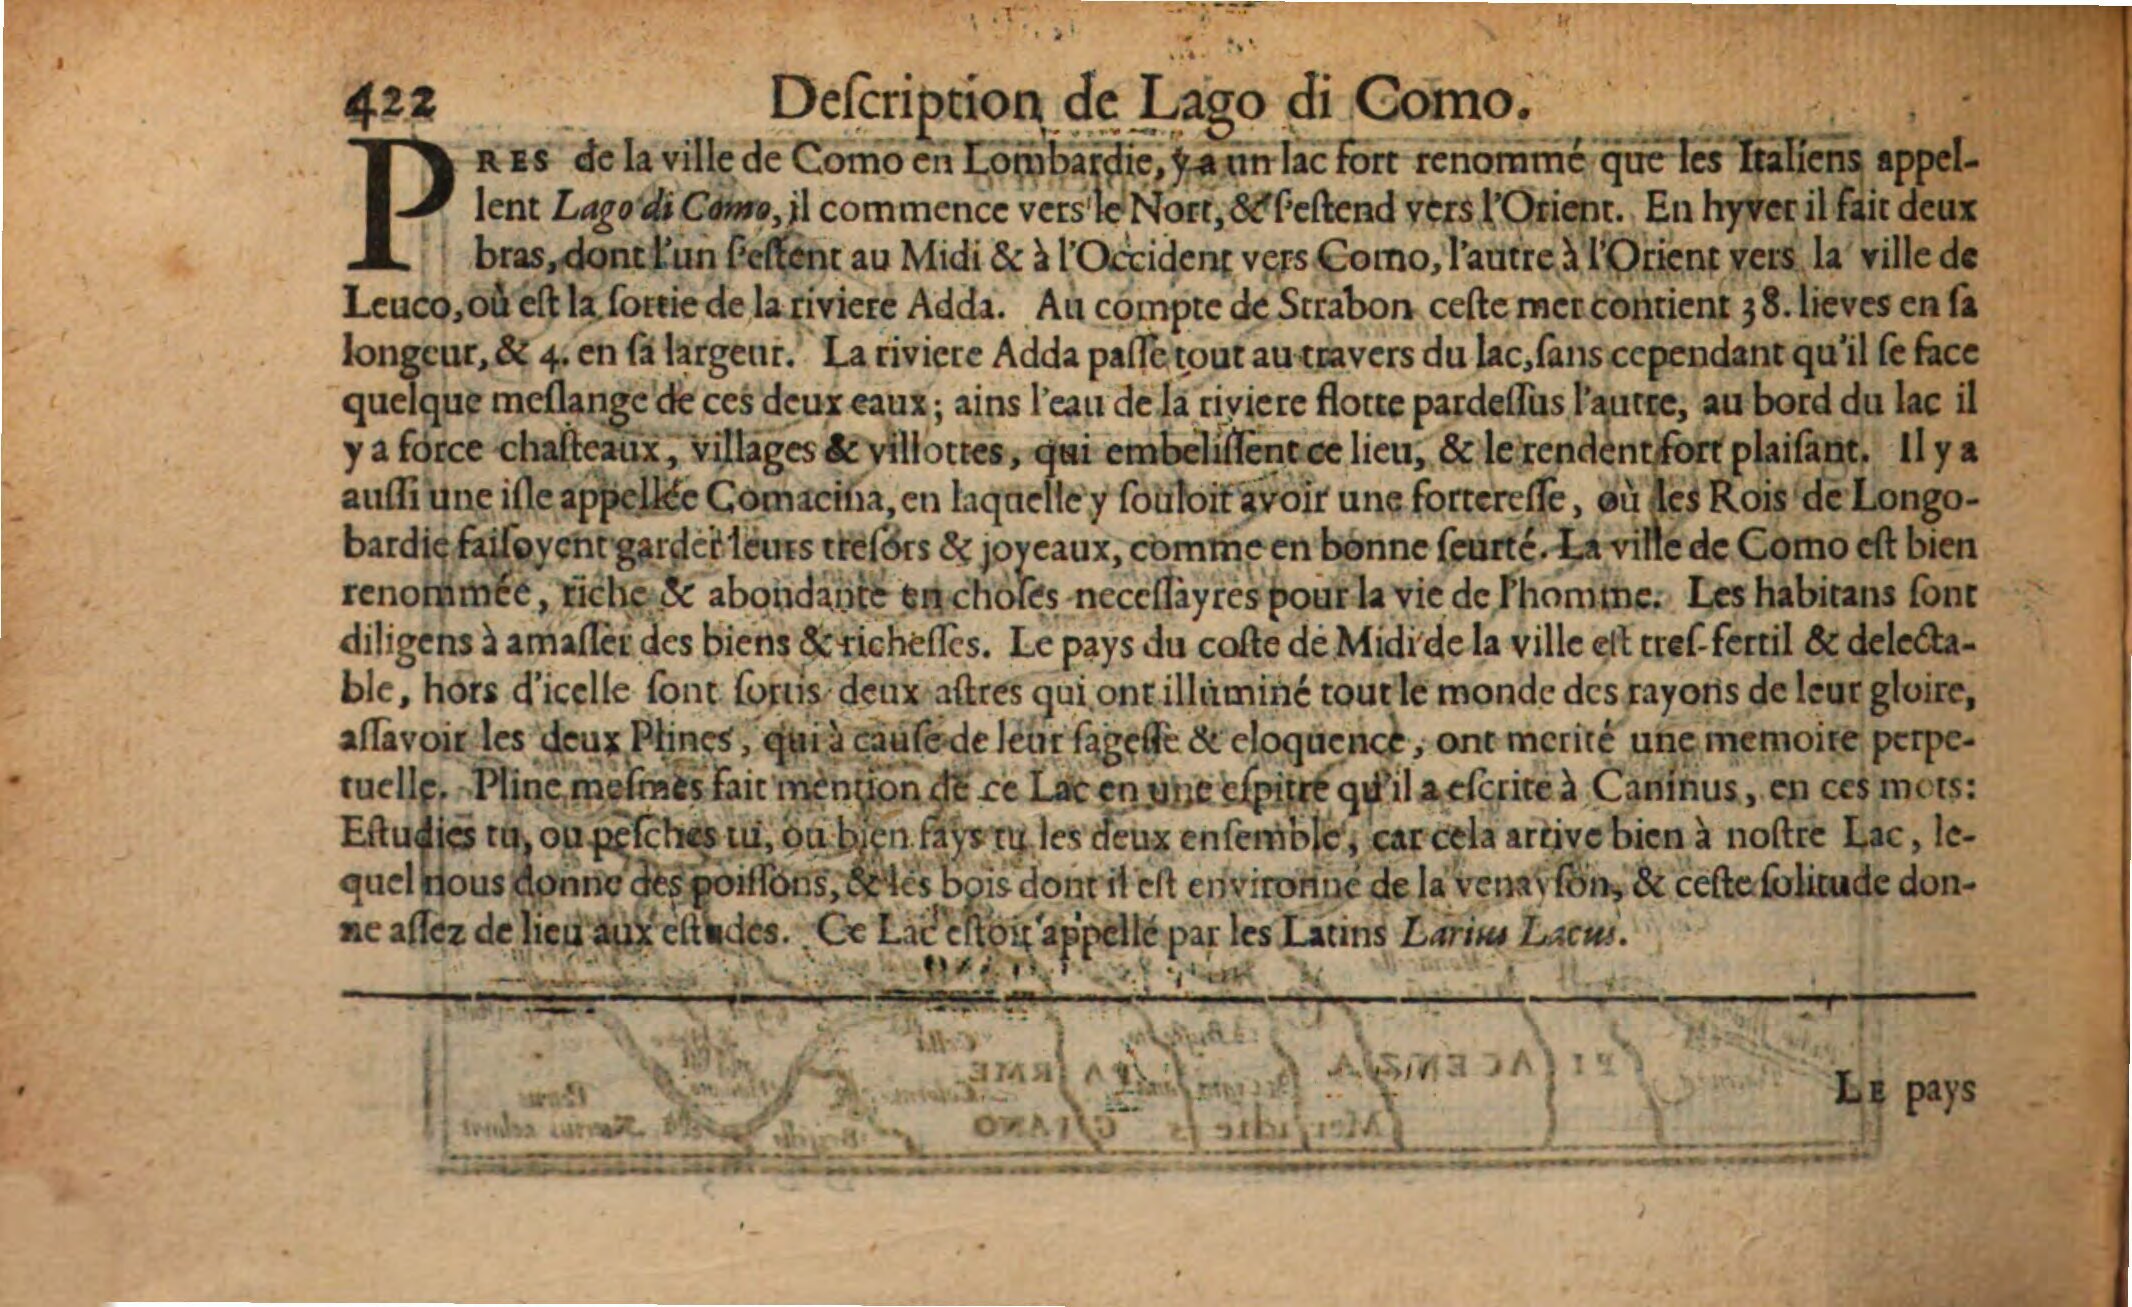 422 Deſcription de Lago di Como.
PRES de la ville de Como en Lombardie, y a un lac fort renommé que les Italiens appel-
lent Lago di Como, il commence vers le Nort, & ſ'eſtend vers l'Orient. En hyver il fait deux
bras, dont l'un ſ'eſtent au Midi & à l'Occident vers Como, l'autre à l'Orient vers la ville de
Leuco, où eſt la ſortie de la riviere Adda. Au compte de Strabon ceſte mer contient 38. lieves en ſa
longeur, & 4. en ſa largeur. La riviere Adda paſſe tout au travers du lac, ſans cependant qu'il ſe face
quelque meſlange de ces deux eaux; ains l'eau de la riviere flotte pardeſſus l'autre, au bord du lac il
y a force chaſteaux, villages & villottes, qui embeliſſent ce lieu, & le rendent fort plaiſant. Il y a
auſſi une iſle appellée Comacina, en laquelle y ſouloit avoir une fortereſſe, où les Rois de Longo-
bardie faiſoyent garder leurs treſors & joyeaux, comme en bonne ſeurté. La ville de Como eſt bien
renommée, riche & abondante en choſes neceſſayres pour la vie de l'homme. Les habitans ſont
diligens à amaſſer des biens & richeſſes. Le pays du coſte de Midi de la ville eſt treſ-fertil & delecta-
ble, hors d'icelle ſont ſortis deux aſtres qui ont illuminé tout le monde des rayons de leur gloire,
aſſavoir les deux Plines, qui à cauſe de leur ſageſſe & eloquence, ont merité une memoire perpe-
tuelle. Pline meſmes fait mention de ce Lac en une eſpitre qu'il a eſcrite à Caninus, en ces mots:
Eſtudies tu, ou peſches tu, ou bien fays tu les deux enſemble, car cela arrive bien à noſtre Lac, le-
quel nous donne des poiſſons, & les bois dont il eſt environné de la venayſon, & ceſte ſolitude don-
ne aſſez de lieu aux eſtudes. Ce Lac eſtoit appellé par les Latins Larius Lacus.
LE pays